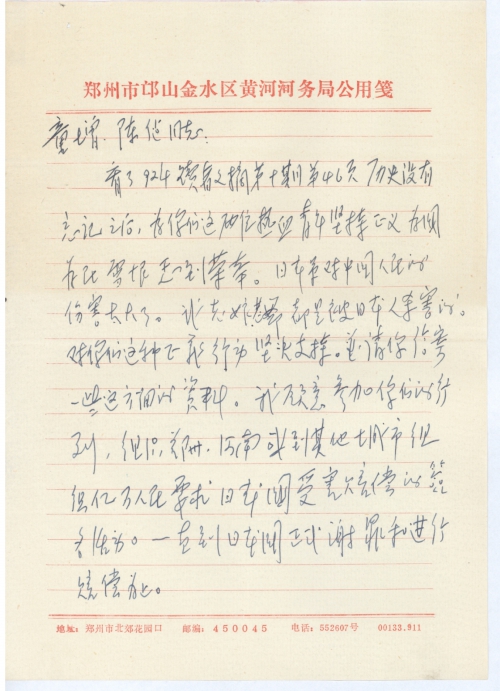 郑州市邙山金水区黄河河务局公用笺
童增、陈健同志:
看了92年读者文摘第十期第46页历史没有
忘记之后,为你们这两位热血青年坚持正义为国
为民雪恨感到荣幸。日本军对中国人民的
伤害太大了。我都是被日本人杀害的。
对你们这种正义行动坚决支持。并请你们寄
一些这方面的资料。我愿意参加你们的行
列,组织郑州、河南或到其他大城市组
织亿万人民要求日本国受害赔偿的签
名活动。一直到日本国正式谢罪和进行
赔偿为止。
地址:郑州市北郊花园口 邮编:450045 电话:552607号 00133.911